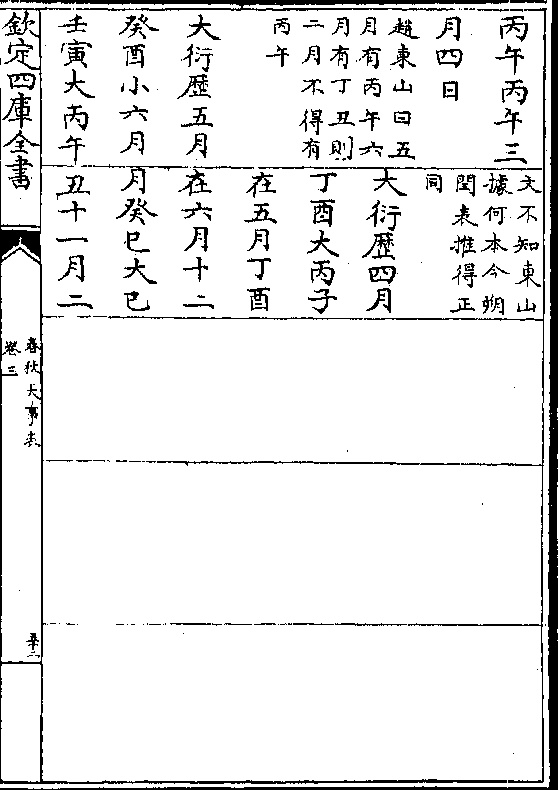 丙午丙午三
月四日
趙東山曰五
月有丙午六
月有丁丑則
二月不得有
丙午
大衍歴五月
癸酉小六月
壬寅大丙午
文不知東山
據何本今朔
閏表推得正
同
大衍歴四月
丁酉大丙子
在五月丁酉
在六月十二
月癸巳大已
丑十一月二
欽定四庫全書
春秋大事表
卷三
五十二